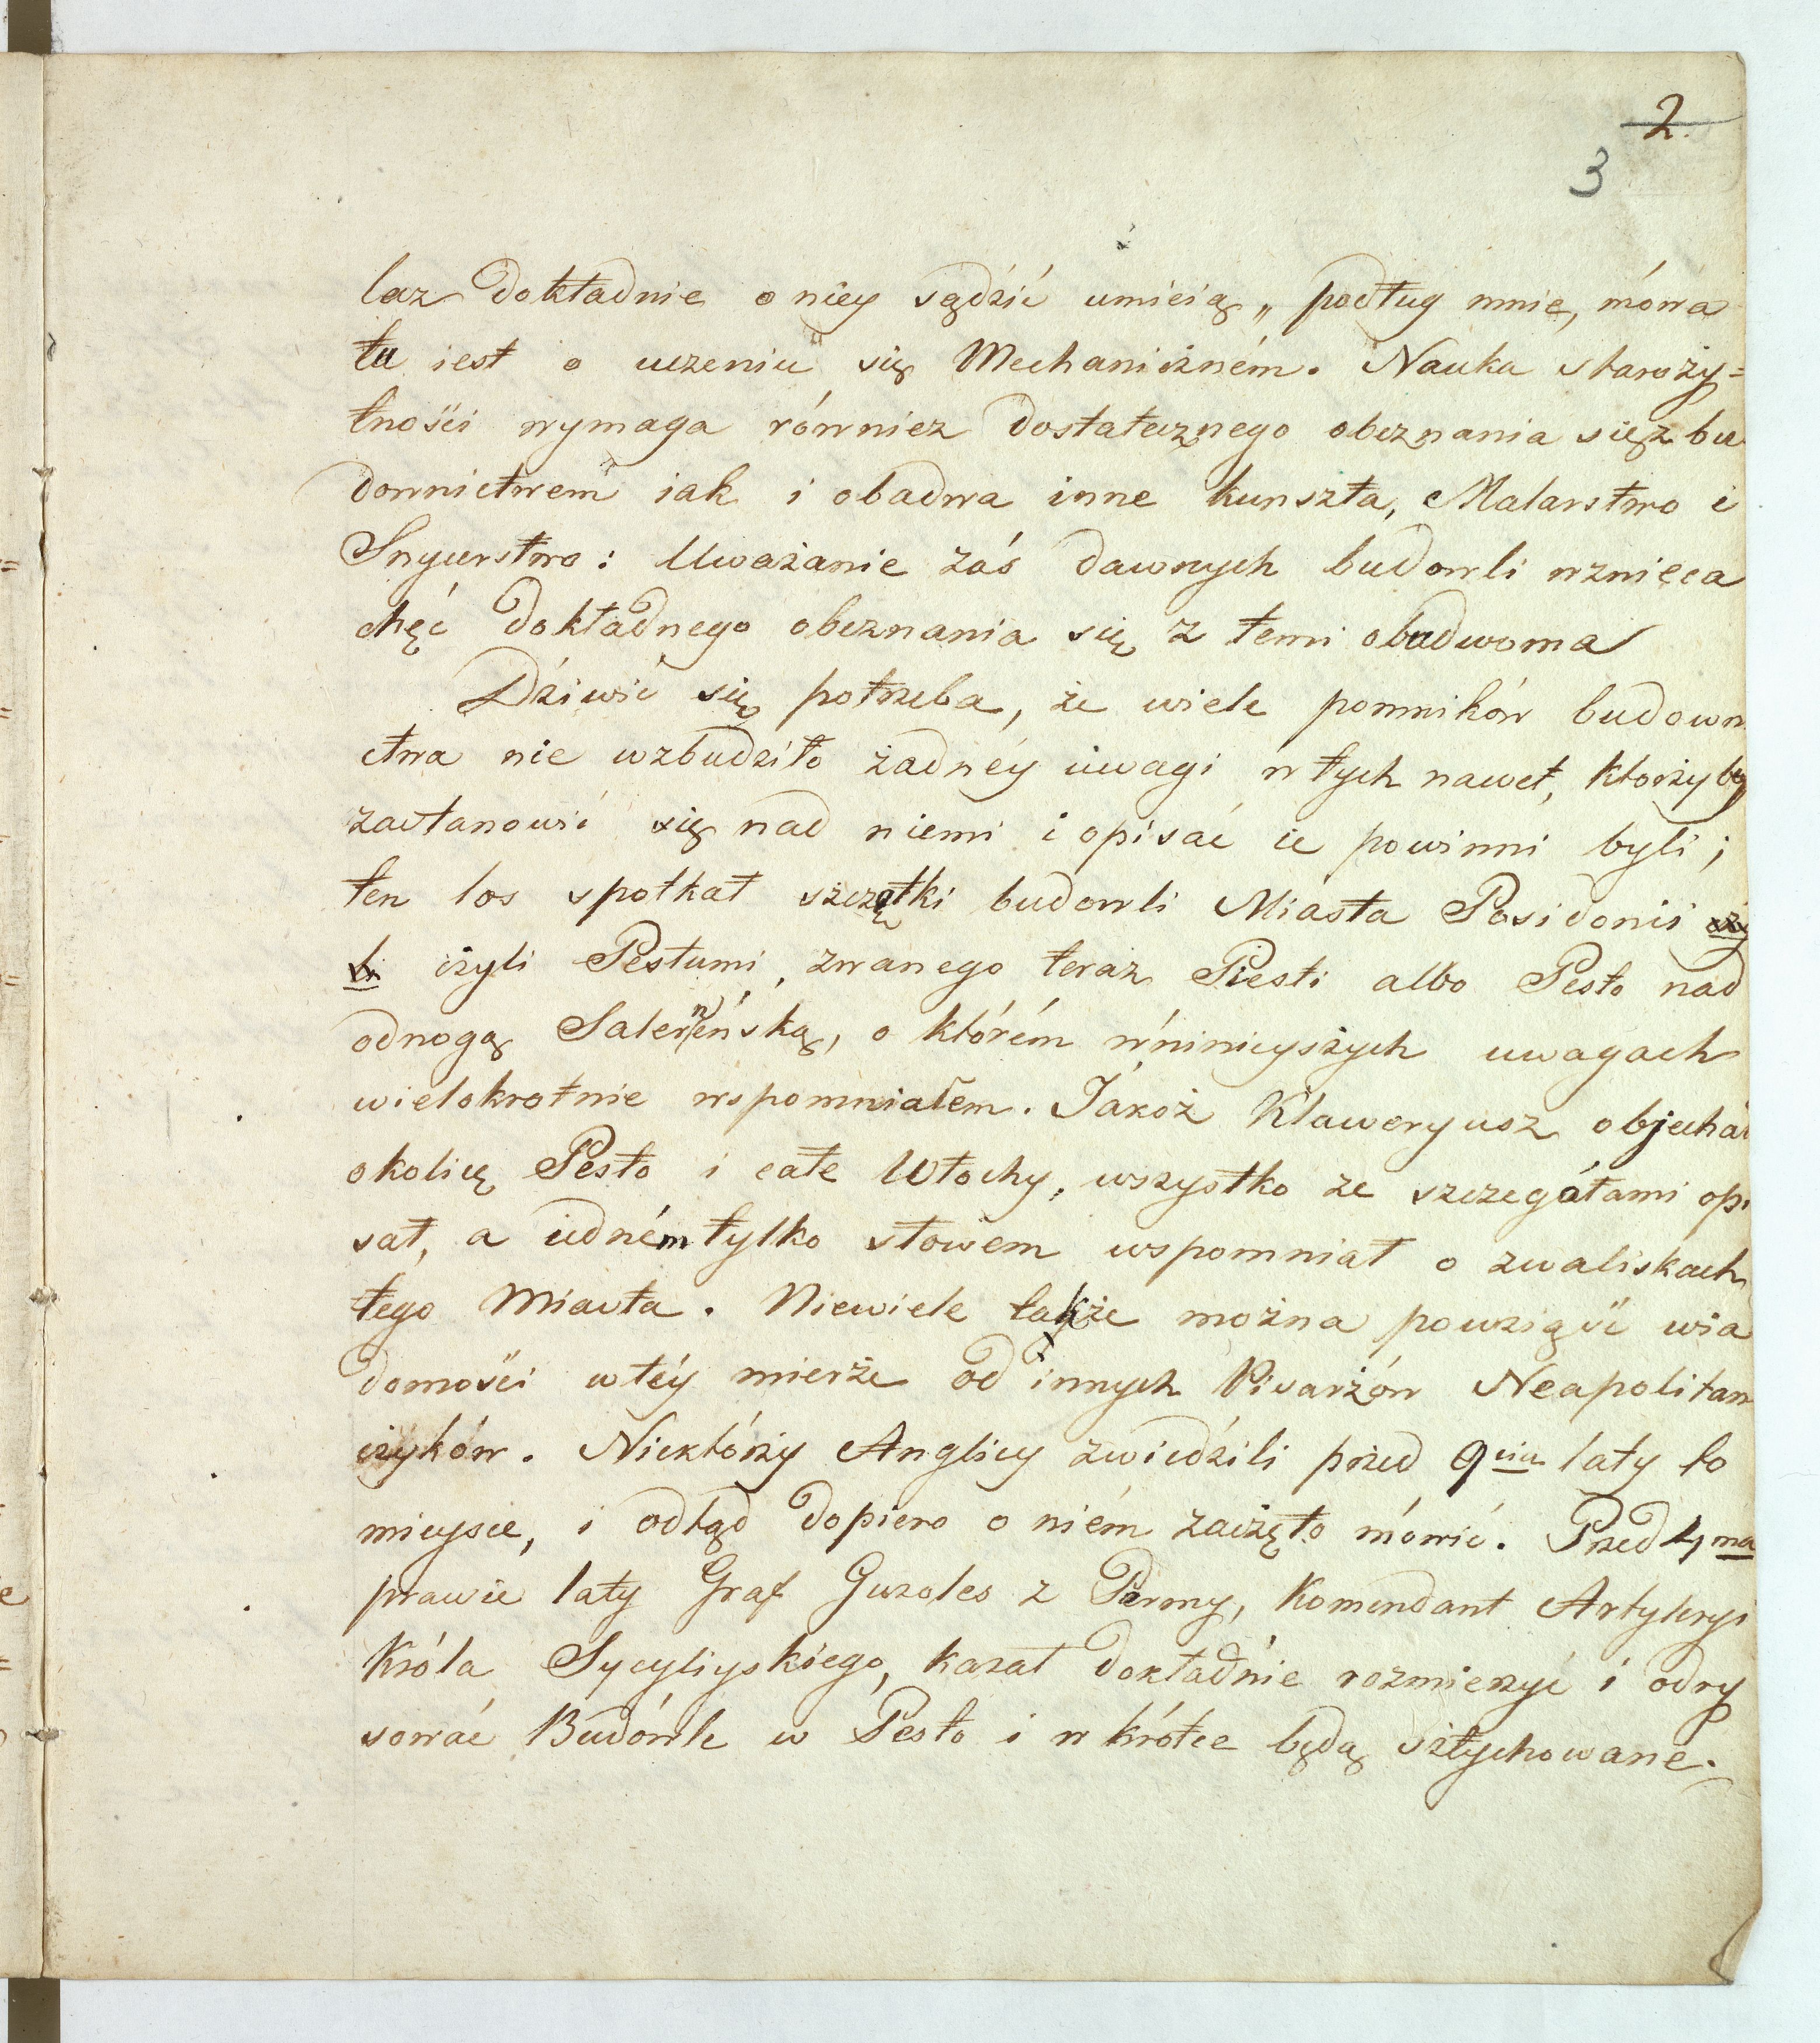 2.
3
laz dokładnie o niey sądzić umieią „ podług mnie, mówa
tu iest o uczeniu się Mechaniczném. Nauka staroży=
tnosći wymaga równiez dostatecznego obeznania się z bu
downictwem iak i obadwa inne kunszta, Malarstwo i
Snycerstwo: Uważanie zaś dawnych budowli wznięca
chęć dokładnego obeznania się z temi obudwoma
Dziwić się potrzeba, że wiele pomników budown
ctwa nie wzbudziło żadnéy uwagi w tych nawet, ktorzyby
zastanowić się nad niemi i opisać ie powinni byli;
ten los spotkał szczątki budowli Miasta Posidonii
czyli Pestumi, zwanego teraz Piesti albo Pesto nad
odnogą Salerneńską, o którém w niniieyszych uwagach
wielokrotnie wspomniałem. Jakoż Klaweryusz objechał
okolicę Pesto i całe Włochy, wszystko ze szczegółami opi
sał, a iedném tylko słowem wspomniał o zwaliskach
tego Miasta. Niewiele także można powziąść wia
domości w téy mierze od innych Pisarzów Neapolitań
czyków. Niektórzy Anglicy zwiedzili przed 9cia laty to
mieysce, i odtąd dopiero o niém zaczęto mówić. Przed 4ma
prawie laty Graf Guzoles z Parmy, Komendant Artyleryi
Króla Sycyliyskiego, kazał dokładnie rozmierzyć i odry
sować Budówle w Pesto i w krótce będą sztychowane.